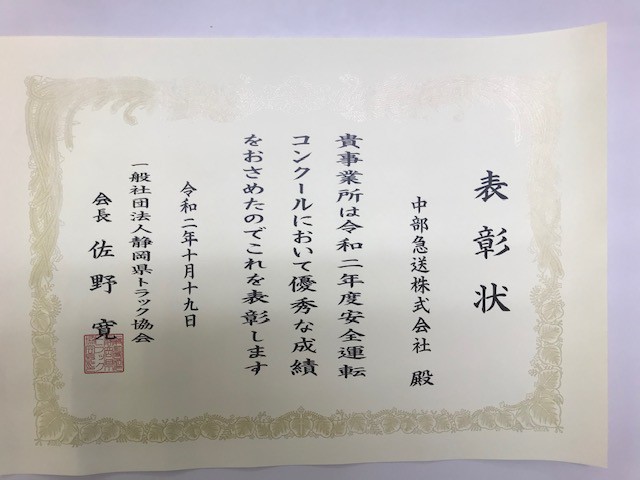 表彰状
中部急送株式会社 殿
貴事業所は令和二年度安全運転
コンクールにおいて優秀な成績
をおさめたのでこれを表彰します
令和二年十月十九日
一般社団法人静岡県トラック協会
会長 佐野 寛